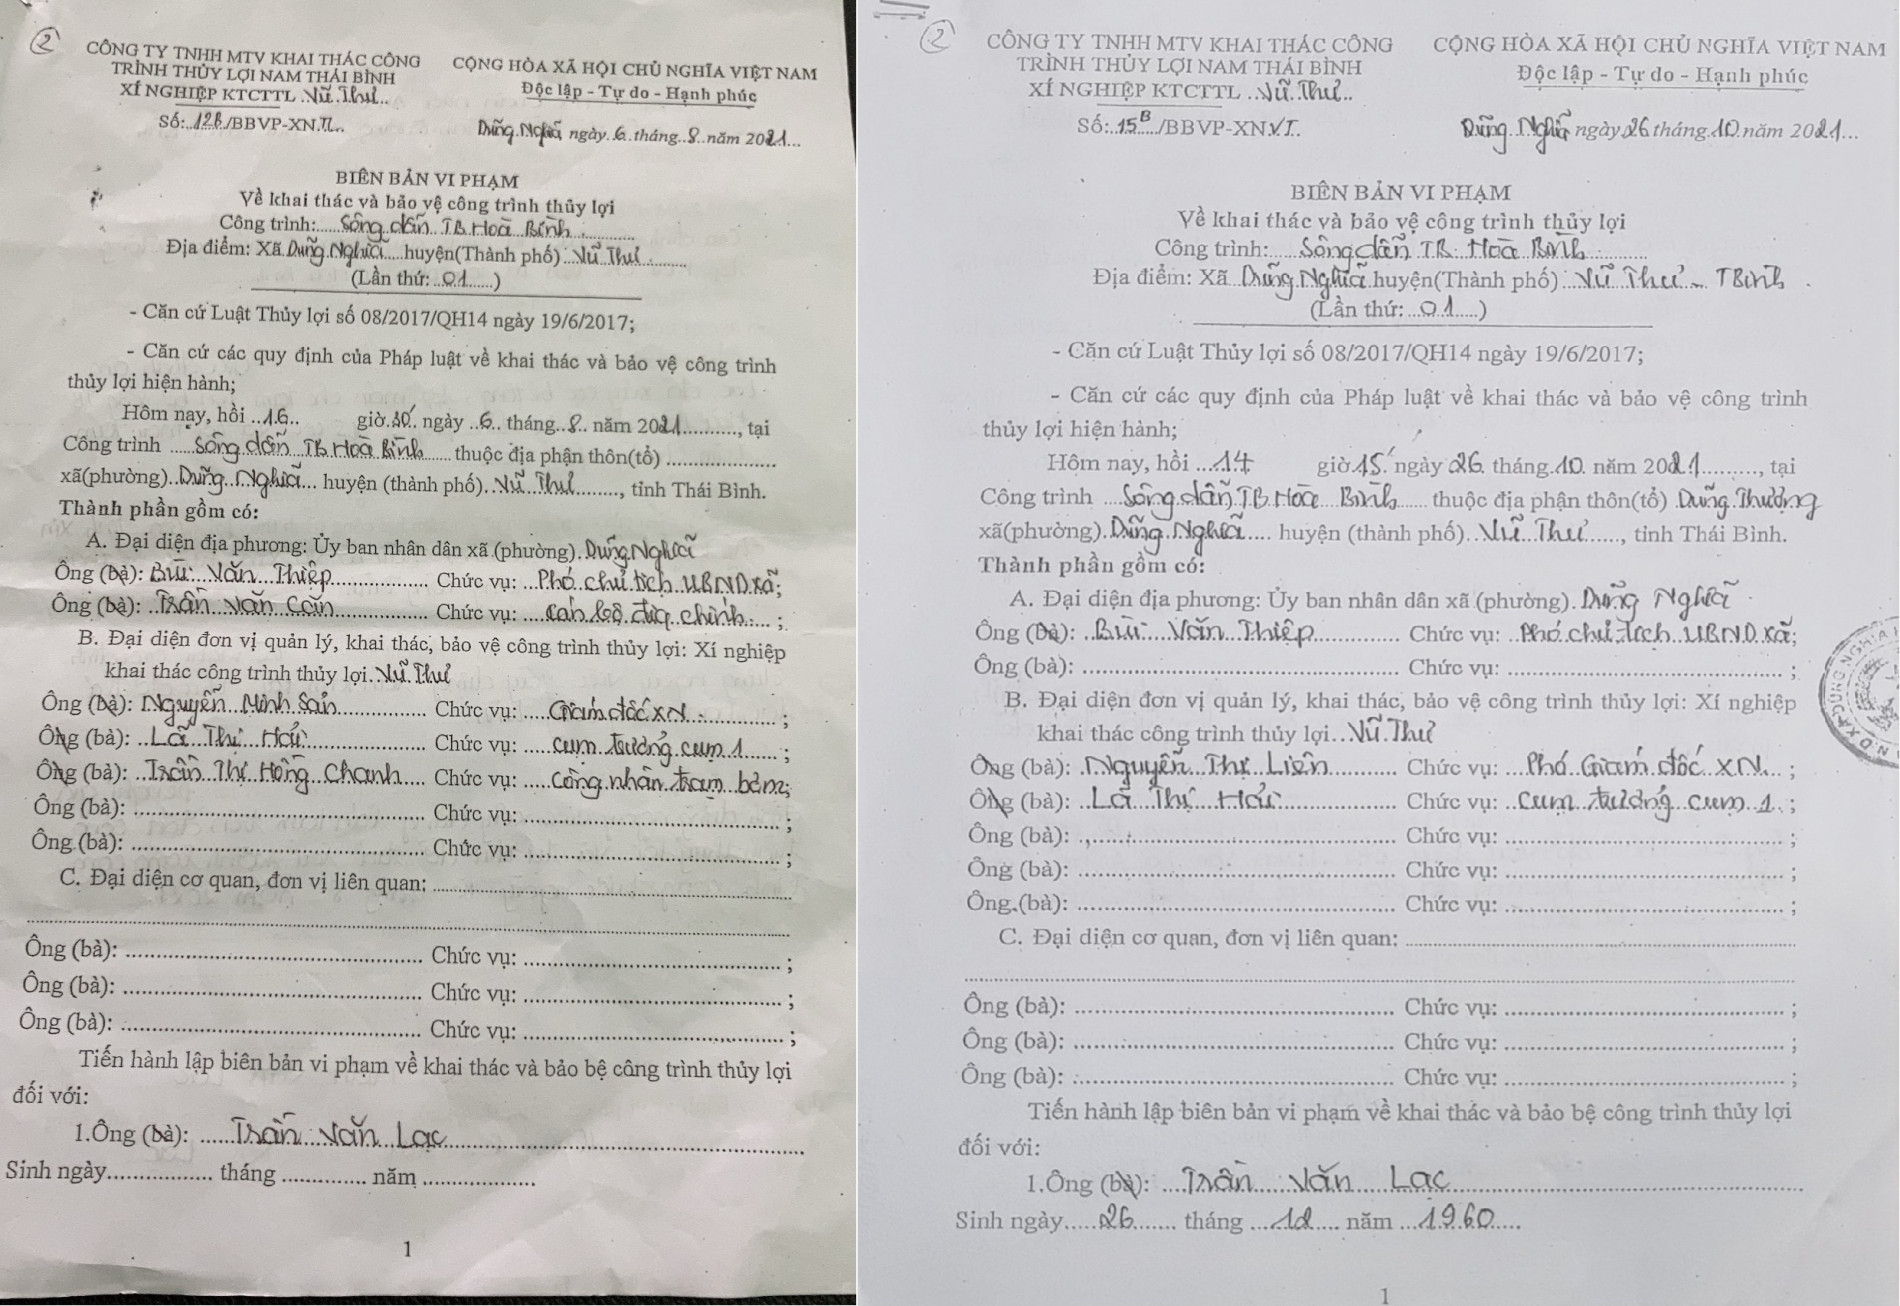 2
CÔNG TY TNHH MTV KHAI THÁC CÔNG
TRÌNH THỦY LỢI NAM THÁI BÌNH
XÍ NGHIỆP KTCTTL ..Vũ Thư..
Số:..12B./BBVP-XN.
CỘNG HÒA XÃ HỘI CHỦ NGHĨA VIỆT NAM
Độc lập - Tự do - Hạnh phúc
Dũng Nghĩa ngày..6..tháng..8..năm 2021...
BIÊN BẢN VI PHẠM
Về khai thác và bảo vệ công trình thủy lợi
Công trình:.....Sông dẫn TB Hoà Bình
Địa điểm: Xã Dũng Nghĩa.....huyện(Thành phố)..Vũ Thư.
(Lần thứ:...01......)
- Căn cứ Luật Thủy lợi số 08/2017/QH14 ngày 19/6/2017;
- Căn cứ các quy định của Pháp luật về khai thác và bảo vệ công trình
thủy lợi hiện hành;
Hôm nay, hồi ..16.. giờ.30. ngày ..6.. tháng..8.. năm 2021.........., tại
Công trình .....Sông dẫn TB Hoà Bình...... thuộc địa phận thôn(tổ) ....................
xã(phường)..Dũng Nghĩa... huyện (thành phố)..Vũ Thư........, tỉnh Thái Bình.
Thành phần gồm có:
A. Đại diện địa phương: Ủy ban nhân dân xã (phường). Dũng Nghĩa
Ông (bà): Bùi Văn Thiệp................. Chức vụ: ...Phó chủ tịch UBND xã;
Ông (bà): ..Trần Văn Căn................ Chức vụ: ....cán bộ địa chính..... ;
B. Đại diện đơn vị quản lý, khai thác, bảo vệ công trình thủy lợi: Xí nghiệp
khai thác công trình thủy lợi. Vũ Thư
Ông (bà): Nguyễn Minh Sản............... Chức vụ: .....Giám đốc XN............. ;
Ông (bà): ..Lã Thị Hải.................. Chức vụ: .....cụm trưởng cụm 1...... ;
Ông (bà): ..Trần Thị Hồng Chanh.... Chức vụ: .....công nhân trạm bơm;
Ông (bà): .................................. Chức vụ: .................................. ;
Ông (bà): .................................. Chức vụ: .................................. ;
C. Đại diện cơ quan, đơn vị liên quan: ..................................
Ông (bà): .................................. Chức vụ: .................................. ;
Ông (bà): .................................. Chức vụ: .................................. ;
Ông (bà): .................................. Chức vụ: .................................. ;
Tiến hành lập biên bản vi phạm về khai thác và bảo bệ công trình thủy lợi
đối với:
1.Ông (bà): ......Trần Văn Lạc..................................
Sinh ngày................. tháng .............. năm ..................
1
2
CÔNG TY TNHH MTV KHAI THÁC CÔNG
TRÌNH THỦY LỢI NAM THÁI BÌNH
XÍ NGHIỆP KTCTTL ..Vũ Thư..
Số:..15B.../BBVP-XNVT.
CỘNG HÒA XÃ HỘI CHỦ NGHĨA VIỆT NAM
Độc lập - Tự do - Hạnh phúc
Dũng Nghĩa ngày 26 tháng.10.năm 2021...
BIÊN BẢN VI PHẠM
Về khai thác và bảo vệ công trình thủy lợi
Công trình:.....Sông dẫn TB Hoà Bình
Địa điểm: Xã..Dũng Nghĩa.huyện(Thành phố)..Vũ Thư - TBình .
(Lần thứ:...01.....)
- Căn cứ Luật Thủy lợi số 08/2017/QH14 ngày 19/6/2017;
- Căn cứ các quy định của Pháp luật về khai thác và bảo vệ công trình
thủy lợi hiện hành;
Hôm nay, hồi ...14 giờ 15. ngày 26. tháng.10. năm 2021.........., tại
Công trình ....Sông dẫn TB Hoà Bình...... thuộc địa phận thôn(tổ) .Dũng Thượng
xã(phường).Dũng Nghĩa.... huyện (thành phố)..Vũ Thư......, tỉnh Thái Bình.
Thành phần gồm có:
A. Đại diện địa phương: Ủy ban nhân dân xã (phường). Dũng Nghĩa
Ông (bà): ..Bùi Văn Thiệp............... Chức vụ: ..Phó chủ tịch UBND xã;
Ông (bà): .................................. Chức vụ: .................................. ;
B. Đại diện đơn vị quản lý, khai thác, bảo vệ công trình thủy lợi: Xí nghiệp
khai thác công trình thủy lợi..Vũ Thư
Ông (bà): .Nguyễn Thị Liên............ Chức vụ: ...Phó Giám đốc XN.... ;
Ông (bà): ..Lã Thị Hải.................. Chức vụ: ..cụm trưởng cụm 1. ;
Ông (bà): .................................. Chức vụ: .................................. ;
Ông (bà): .................................. Chức vụ: .................................. ;
Ông (bà): .................................. Chức vụ: .................................. ;
C. Đại diện cơ quan, đơn vị liên quan: ..................................
Ông (bà): .................................. Chức vụ: .................................. ;
Ông (bà): .................................. Chức vụ: .................................. ;
Ông (bà): .................................. Chức vụ: .................................. ;
Tiến hành lập biên bản vi phạm về khai thác và bảo bệ công trình thủy lợi
đối với:
1.Ông (bà): ....Trần Văn Lạc..................................
Sinh ngày.....26....... tháng ...12.... năm ...1960....
1